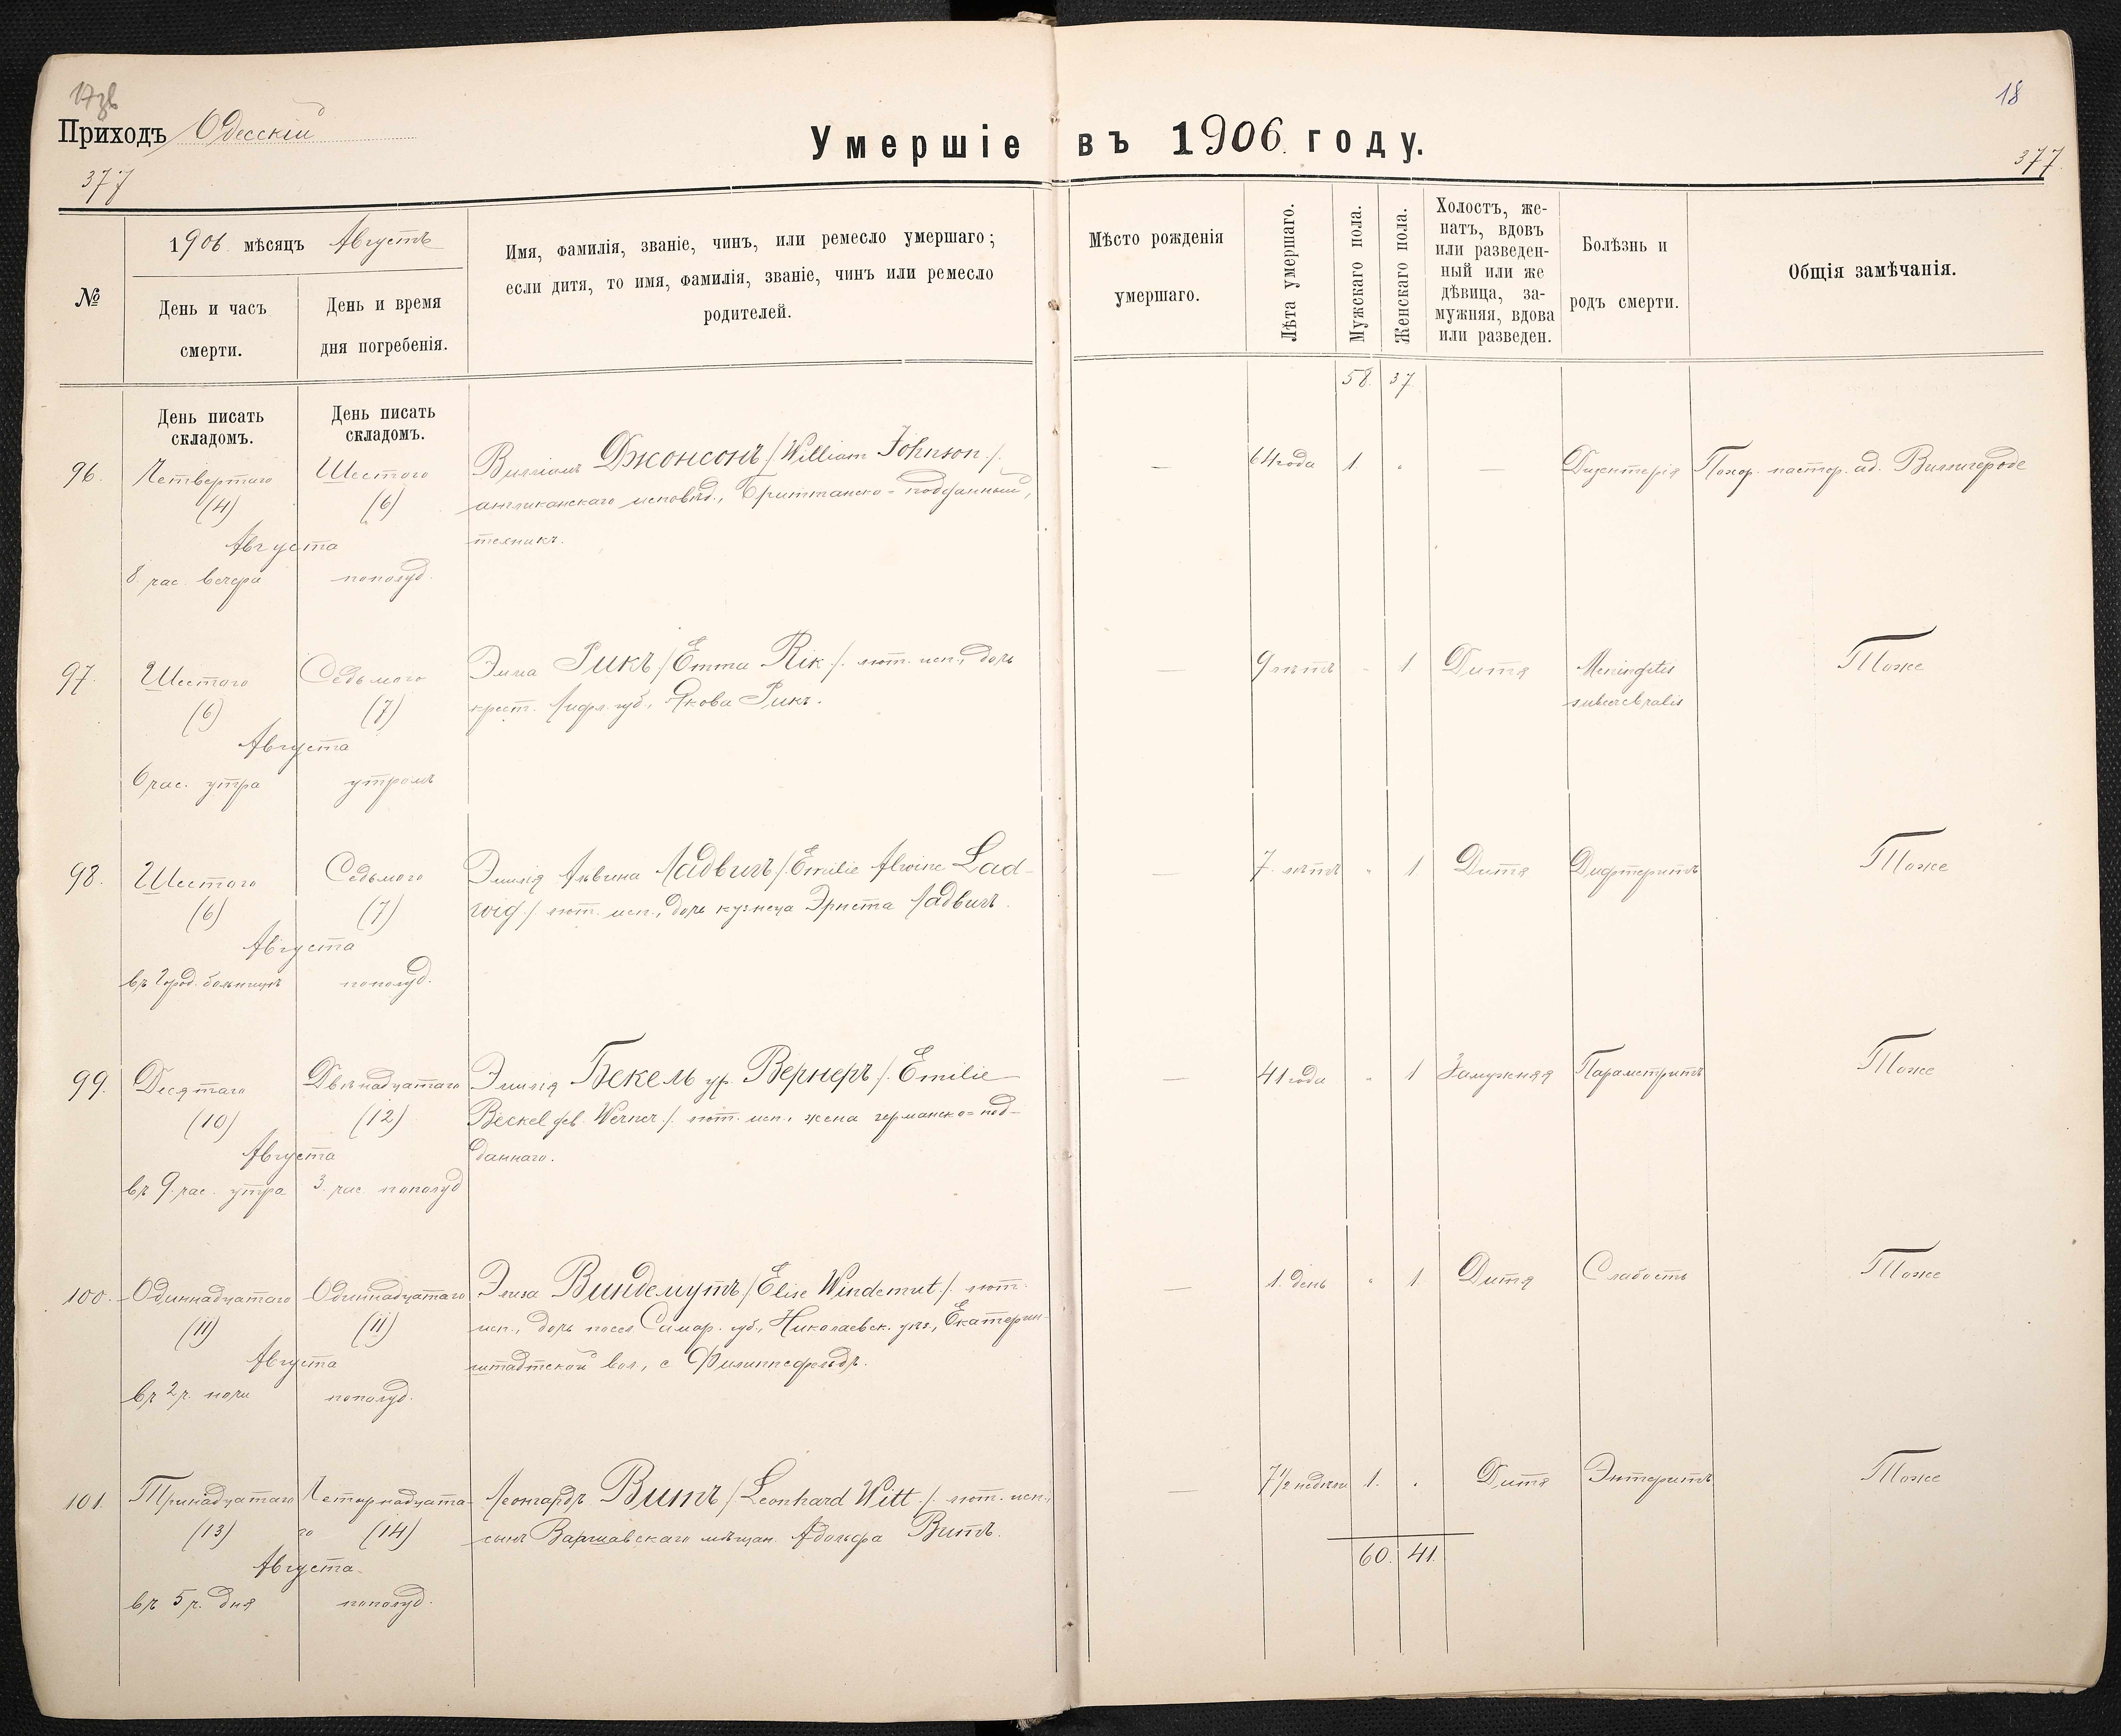 17зв
18
Приходъ Одесскій
Умершіе въ 1906 году.
377
377
№
1906 мѣсяцъ Августъ
День и часъ
смерти.
День и время
дня погребенія.
Имя, фамилія, званіе, чинъ, или ремесло умершаго;
если дитя, то имя, фамилія, званіе, чинъ или ремесло
родителей.
Мѣсто рожденія
умершаго.
Лѣта умершаго.
Мужскаго пола.
Женскаго пола.
Холостъ, же-
натъ, вдовъ
или разведен-
ный или же
дѣвица, за-
мужняя, вдова
или разведен.
Болѣзнь и
родъ смерти.
Общія замѣчанія.
58. 37
День писать
складомъ.
День писать
складомъ.
96.
Четвертаго
(4)
Августа
8. час. вечера
Шестого
(6)
пополуд.
Вилліамъ Джонсонъ /William Johnson/.
англиканскаго исповѣд., Британско-подданный,
техникъ.
—
64 года
1.
"
—
Дизентерія
Похор. пастор. ад. Виллигероде
97.
Шестого
(6)
Августа
6 час. утра
Седьмого
(7)
утромъ
Эмма Рикъ /Emma Rik/. лют. исп., дочь
крест. Лифл. губ., Якова Рикъ.
—
9 лѣтъ
"
1
Дитя
Meningitis
subcerebralis
Тоже
98.
Шестого
(6)
Августа
въ Город. больницѣ
Седьмого
(7)
пополуд.
Эмилія Альвина Ладвигъ /Emilie Alwine Lad-
wig/ лют. исп., дочь кузнеца Эрнста Ладвигъ.
—
7 лѣтъ
"
1.
Дитя
Дифтеритъ
Тоже
99.
Десятаго
(10)
Августа
въ 9. час. утра
Двѣнадцатаго
(12)
3. час. пополуд
Эмилія Бекель ур. Вернеръ /. Emilie
Beckel geb. Werner/. лют. исп., жена германско-под-
даннаго.
—
41 года
"
1
Замужняя
Параметритъ
Тоже
100.
Одиннадцатаго
(11)
Августа
въ 2 ч. ночи
Одиннадцатаго
(11)
пополуд.
Элиза Виндемутъ /Elise Windemut/. лют.
исп., дочь посел. Самар. губ., Николаевск. уѣз., Екатерин-
штадтской вол., с Филиппсфельдъ.
—
1. день
"
1.
Дитя
Слабость
Тоже
101.
Тринадцатаго
(13)
Августа
въ 5 ч. дня
Четырнадцата-
го (14)
пополуд.
Леонгардъ Витъ /Leonhard Witt/. лют. исп.,
сынъ Варшавскаго мѣщан. Адольфа Витъ.
—
7 1/2 недѣли
1.
"
Дитя
Энтеритъ
Тоже
60. 41.